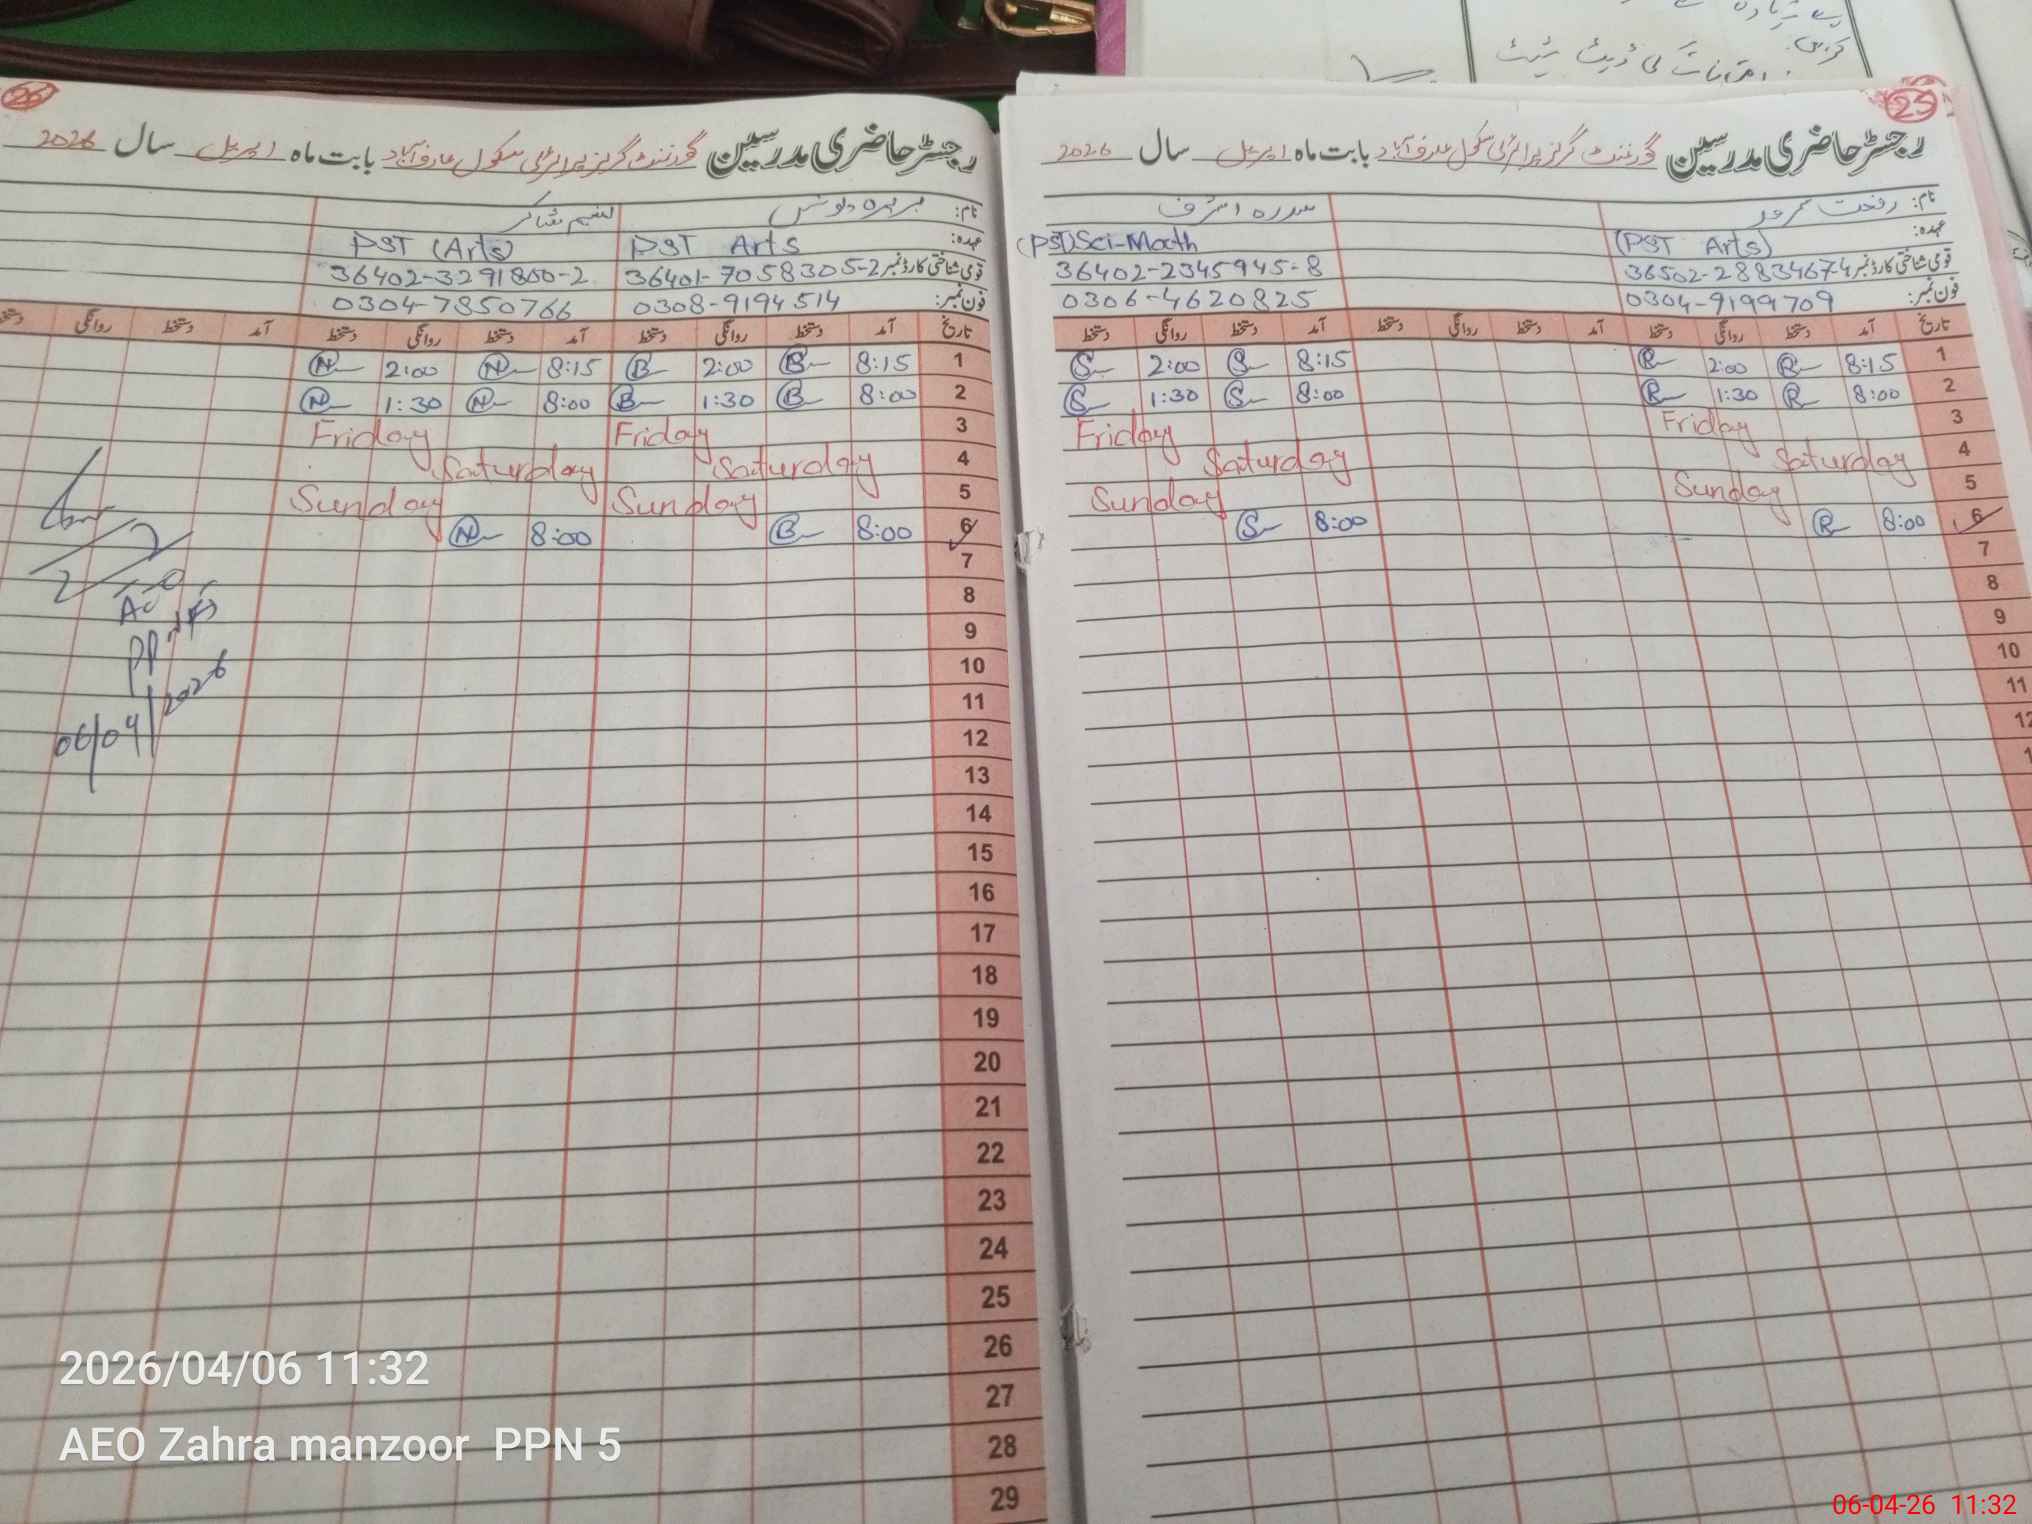 26
رجسٹر حاضری مدرسین گورنمنٹ گرلز پرائمری سکول عارف آباد بابت ماہ اپریل سال 2026
نام: بریرہ یونس
عہدہ: PST Arts PST (Arts)
قومی شناختی کارڈ نمبر 36401-7058305-2 36402-3291800-2
فون نمبر: 0308-9194514 0304-7850766
تاریخ آمد دستخط روانگی دستخط آمد دستخط روانگی دستخط آمد دستخط روانگی دستخط
1 8:15 B 2:00 B 8:15 N 2:00 N
2 8:00 B 1:30 B 8:00 N 1:30 N
3 Friday Friday
4 Saturday Saturday
5 Sunday Sunday
6 8:00 B 8:00 N
7
8
9
10
11
12
13
14
15
16
17
18
19
20
21
22
23
24
25
26
27
28
29
06/04/2026
25
رجسٹر حاضری مدرسین گورنمنٹ گرلز پرائمری سکول عارف آباد بابت ماہ اپریل سال 2026
نام: رفعت سرور سدرہ اشرف
عہدہ: (PST Arts) (PST) Sci-Math
قومی شناختی کارڈ نمبر 36502-2883467-4 36402-2345945-8
فون نمبر: 0304-9199709 0306-4620825
تاریخ آمد دستخط روانگی دستخط آمد دستخط روانگی دستخط آمد دستخط روانگی دستخط
1 8:15 R 2:00 R 8:15 S 2:00 S
2 8:00 R 1:30 R 8:00 S 1:30 S
3 Friday Friday
4 Saturday Saturday
5 Sunday Sunday
6 8:00 R 8:00 S
7
8
9
10
11
12
2026/04/06 11:32
AEO Zahra manzoor PPN 5
06-04-26 11:32